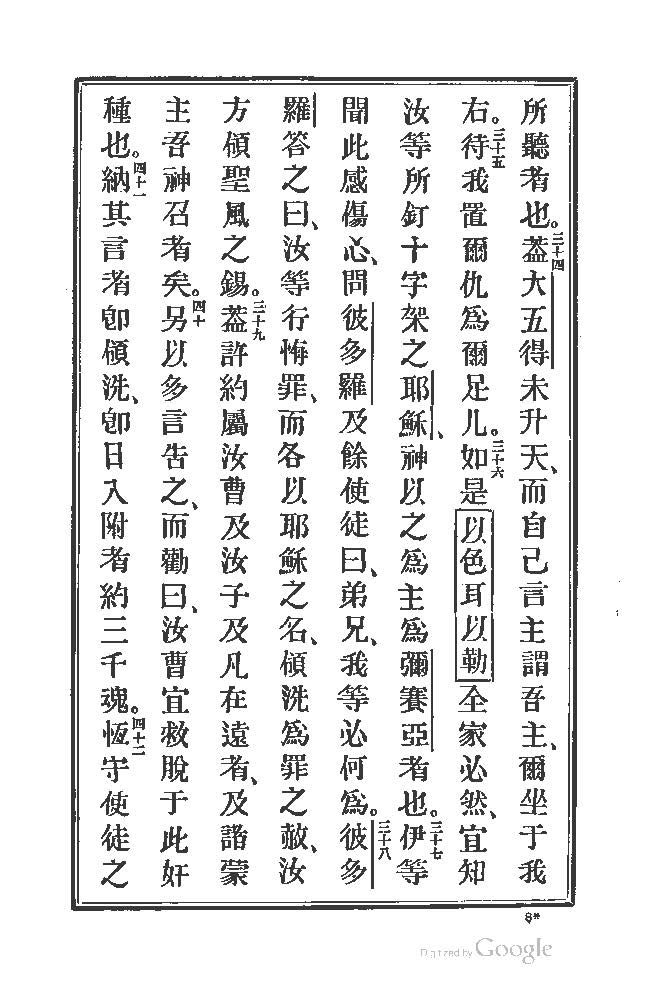 所聽者也。三十四葢大五得未升天、而自己言主謂吾主、爾坐于我
右。三十五待我置爾仇爲爾足儿。三十六如是以色耳以勒全家必然、宜知
汝等所釘十字架之耶穌、神以之爲主爲彌賽亞者也。三十七伊等
聞此感傷心、問彼多羅及餘使徒曰、弟兄、我等必何爲。三十八彼多
羅答之曰、汝等行悔罪、而各以耶穌之名、領洗爲罪之赦、汝
方領聖風之錫。三十九葢許約屬汝曹及汝子及凡在遠者、及諸蒙
主吾神召者矣。四十另以多言告之、而勸曰、汝曹宜救脫于此奸
種也。四十一納其言者卽領洗、卽日入附者約三千魂。四十二恆守使徒之
8*
Digitized by Google